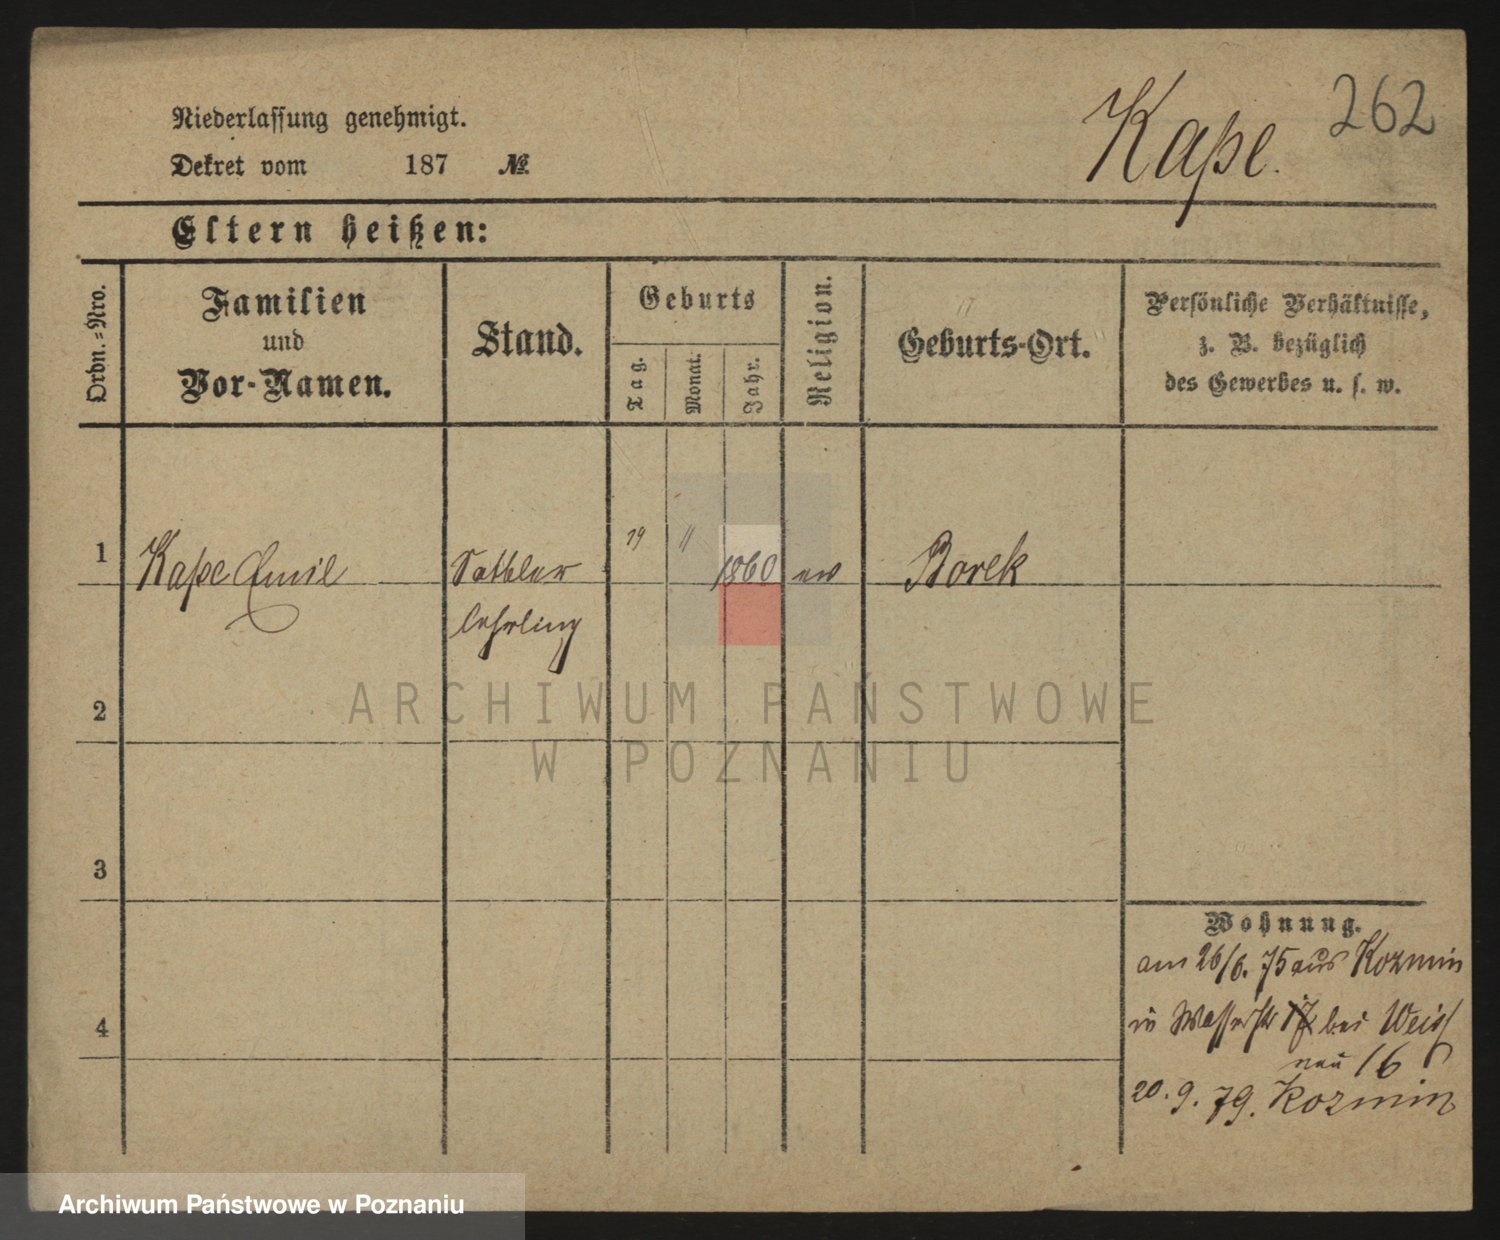 262
Kaße.
Niederlassung genehmigt.
Dekret vom 187 №
Eltern heißen:
Ordn.=Nro.
Familien
und
Vor-Namen.
Stand.
Geburts
Tag.
Monat.
Jahr.
Religion.
Geburts-Ort.
Persönliche Verhältnisse,
z. B. bezüglich
des Gewerbes u. s. w.
1 Kaße Emil Sattler 19 11 1860 ev Borek
lehrling
2
3
4
Wohnung.
am 26/6. 75 aus Kozmin
in Wasserstr 17 bei Weiss
neu 16
20. 9. 79. Kozmin
ARCHIWUM PAŃSTWOWE
W POZNANIU
Archiwum Państwowe w Poznaniu